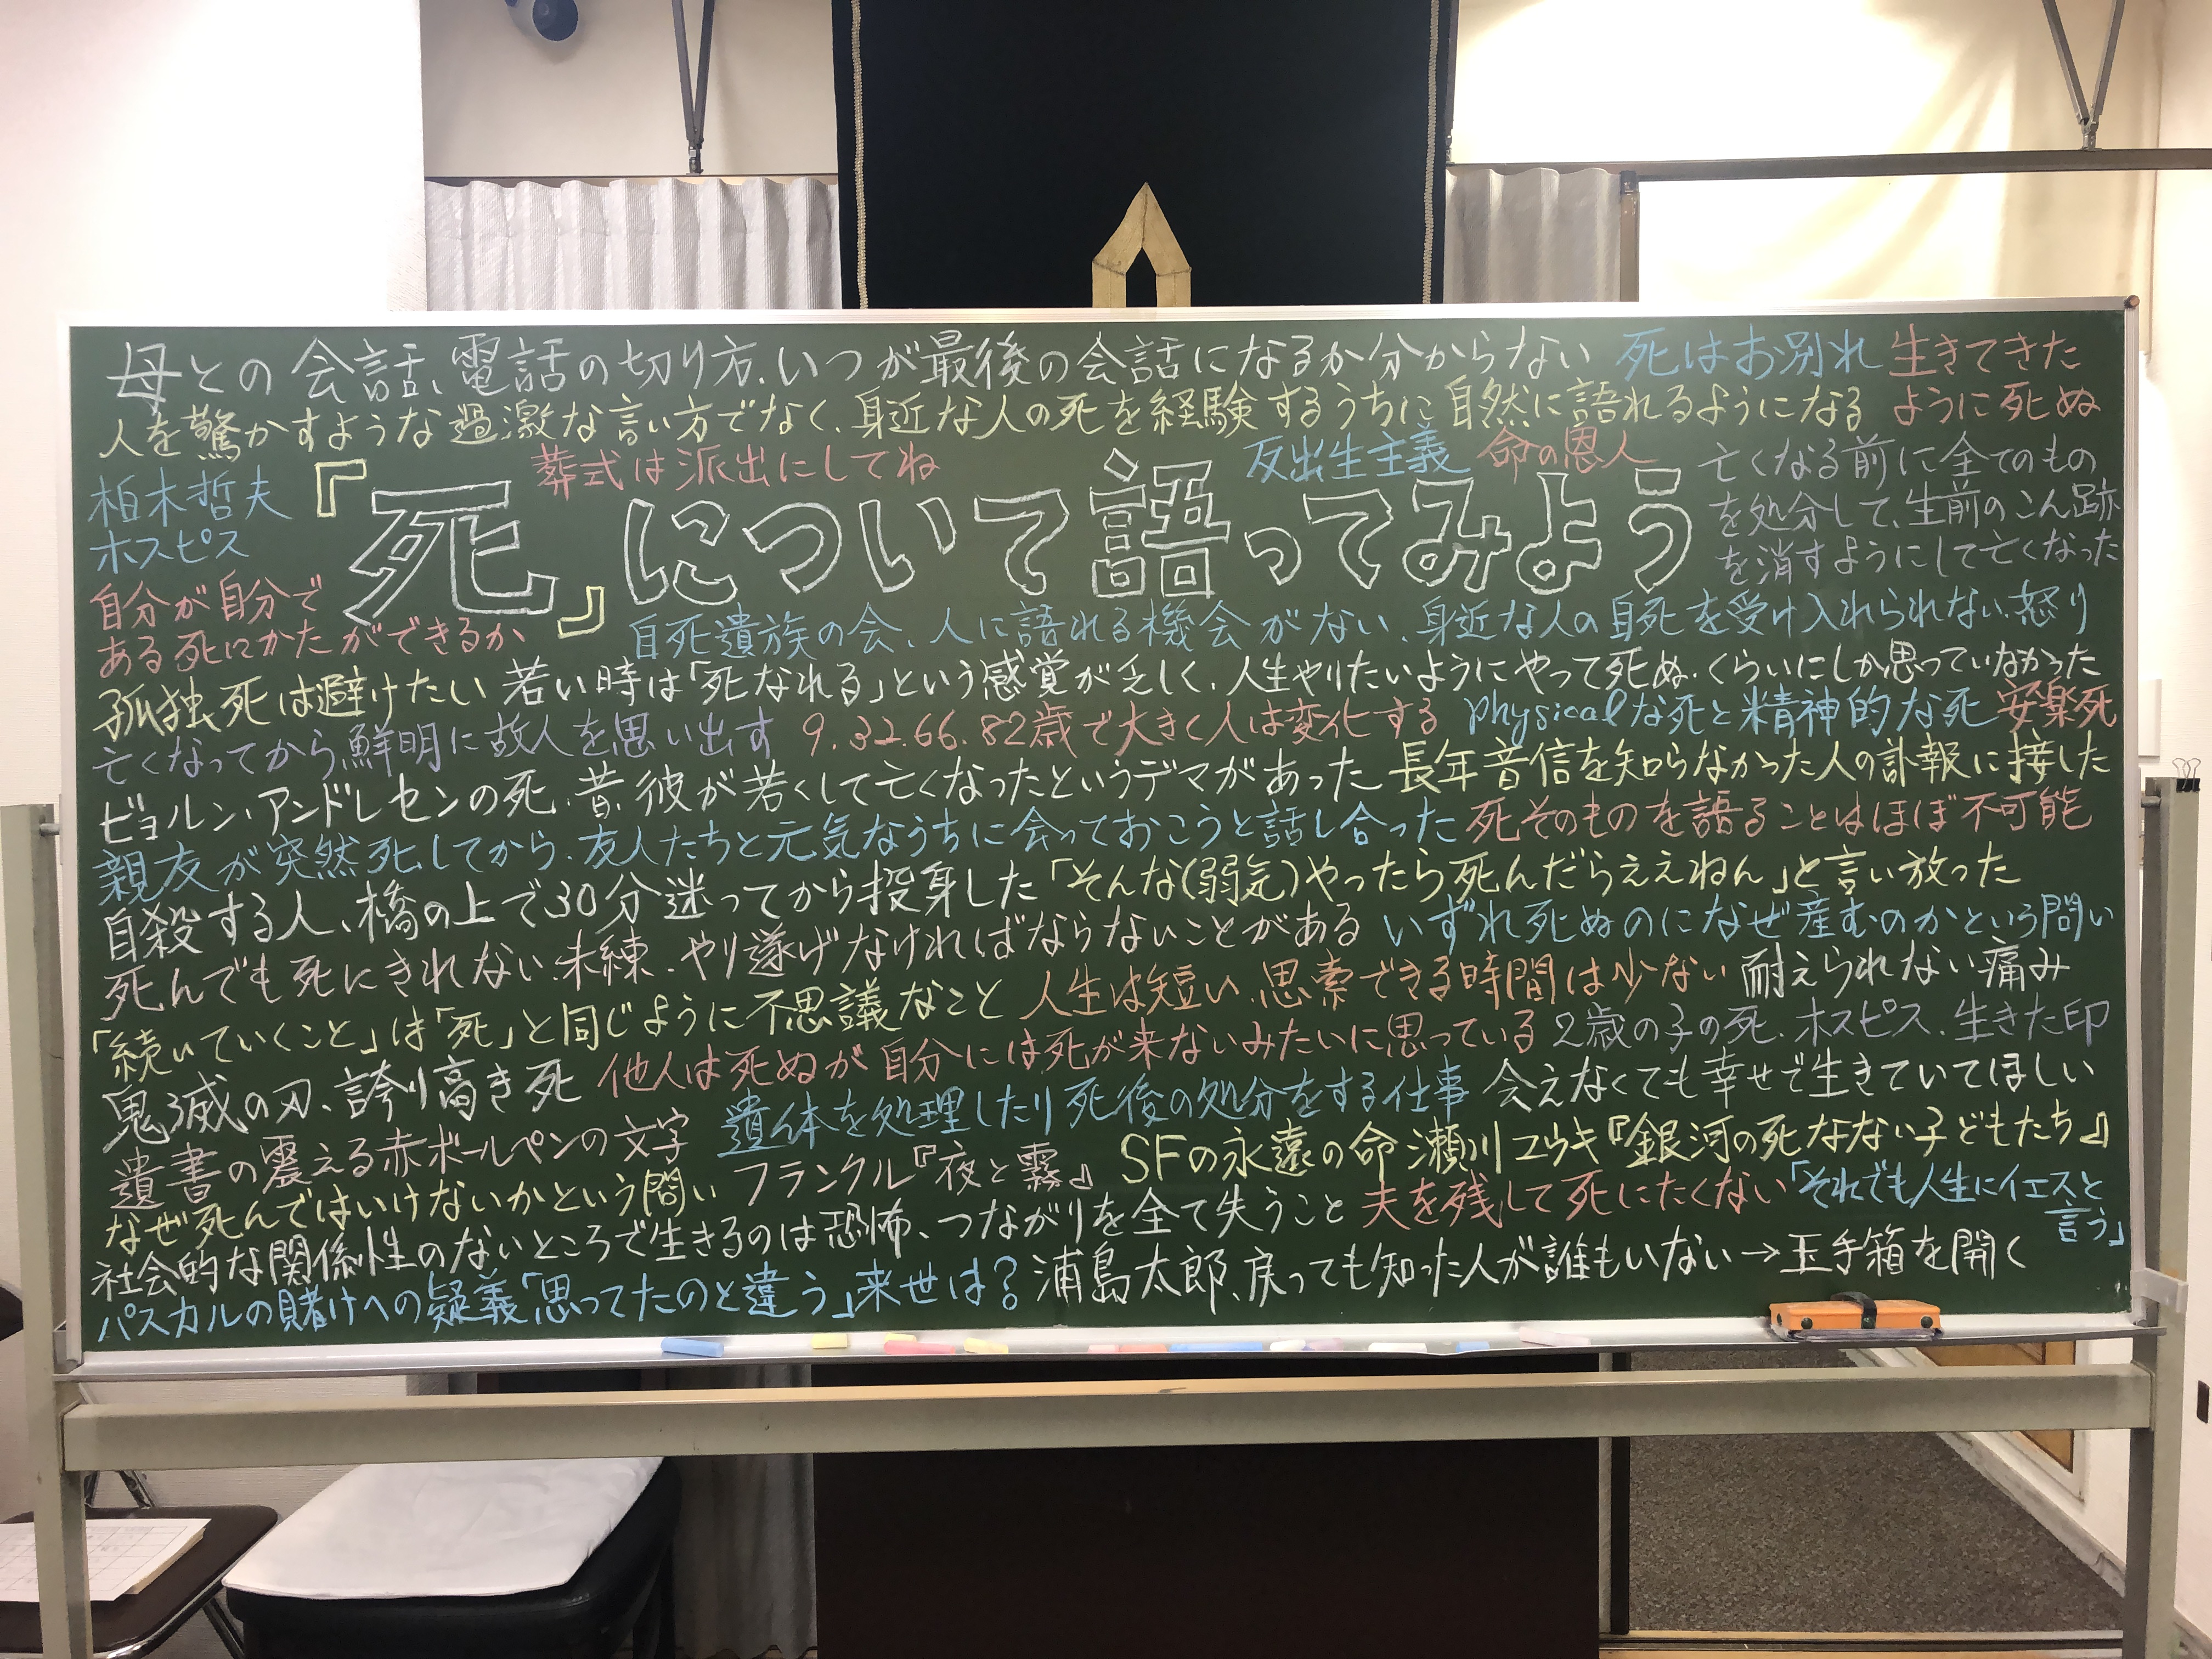 母との会話、電話の切り方、いつが最後の会話になるか分からない 死はお別れ 生きてきた
人を驚かすような過激な言い方でなく、身近な人の死を経験するうちに自然に語れるようになる ように死ぬ
葬式は派出にしてね 反出生主義 命の恩人 亡くなる前に全てのもの
柏木哲夫 『死』について語ってみよう を処分して、生前のこん跡
ホスピス を消すようにして亡くなった
自分が自分で
ある死にかたができるか 自死遺族の会、人に語れる機会がない、身近な人の自死を受け入れられない、怒り
孤独死は避けたい 若い時は「死なれる」という感覚が乏しく、人生やりたいようにやって死ぬ、くらいにしか思っていなかった
亡くなってから鮮明に故人を思い出す 9.32.66.82歳で大きく人は変化する physicalな死と精神的な死 安楽死
ビョルン・アンドレセンの死、昔、彼が若くして亡くなったというデマがあった 長年音信を知らなかった人の訃報に接した
親友が突然死してから、友人たちと元気なうちに会っておこうと話し合った 死そのものを語ることはほぼ不可能
自殺する人、橋の上で30分迷ってから投身した 「そんな(弱気)やったら死んだらええねん」と言い放った
死んでも死にきれない、未練、やり遂げなければならないことがある いずれ死ぬのになぜ産むのかという問い
「続いていくこと」は「死」と同じように不思議なこと 人生は短い、思索できる時間は少ない 耐えられない痛み
鬼滅の刃、誇り高き死 他人は死ぬが自分には死が来ないみたいに思っている 2歳の子の死、ホスピス、生きた印
遺書の震える赤ボールペンの文字 遺体を処理したり死後の処分をする仕事 会えなくても幸せで生きていてほしい
なぜ死んではいけないかという問い フランクル『夜と霧』 SFの永遠の命 瀬川ユウキ『銀河の死なない子どもたち』
社会的な関係性のないところで生きるのは恐怖、つながりを全て失うこと 夫を残して死にたくない 「それでも人生にイエスと
言う」
パスカルの賭けへの疑義「思ってたのと違う」来世は? 浦島太郎、戻っても知った人が誰もいない→玉手箱を開く